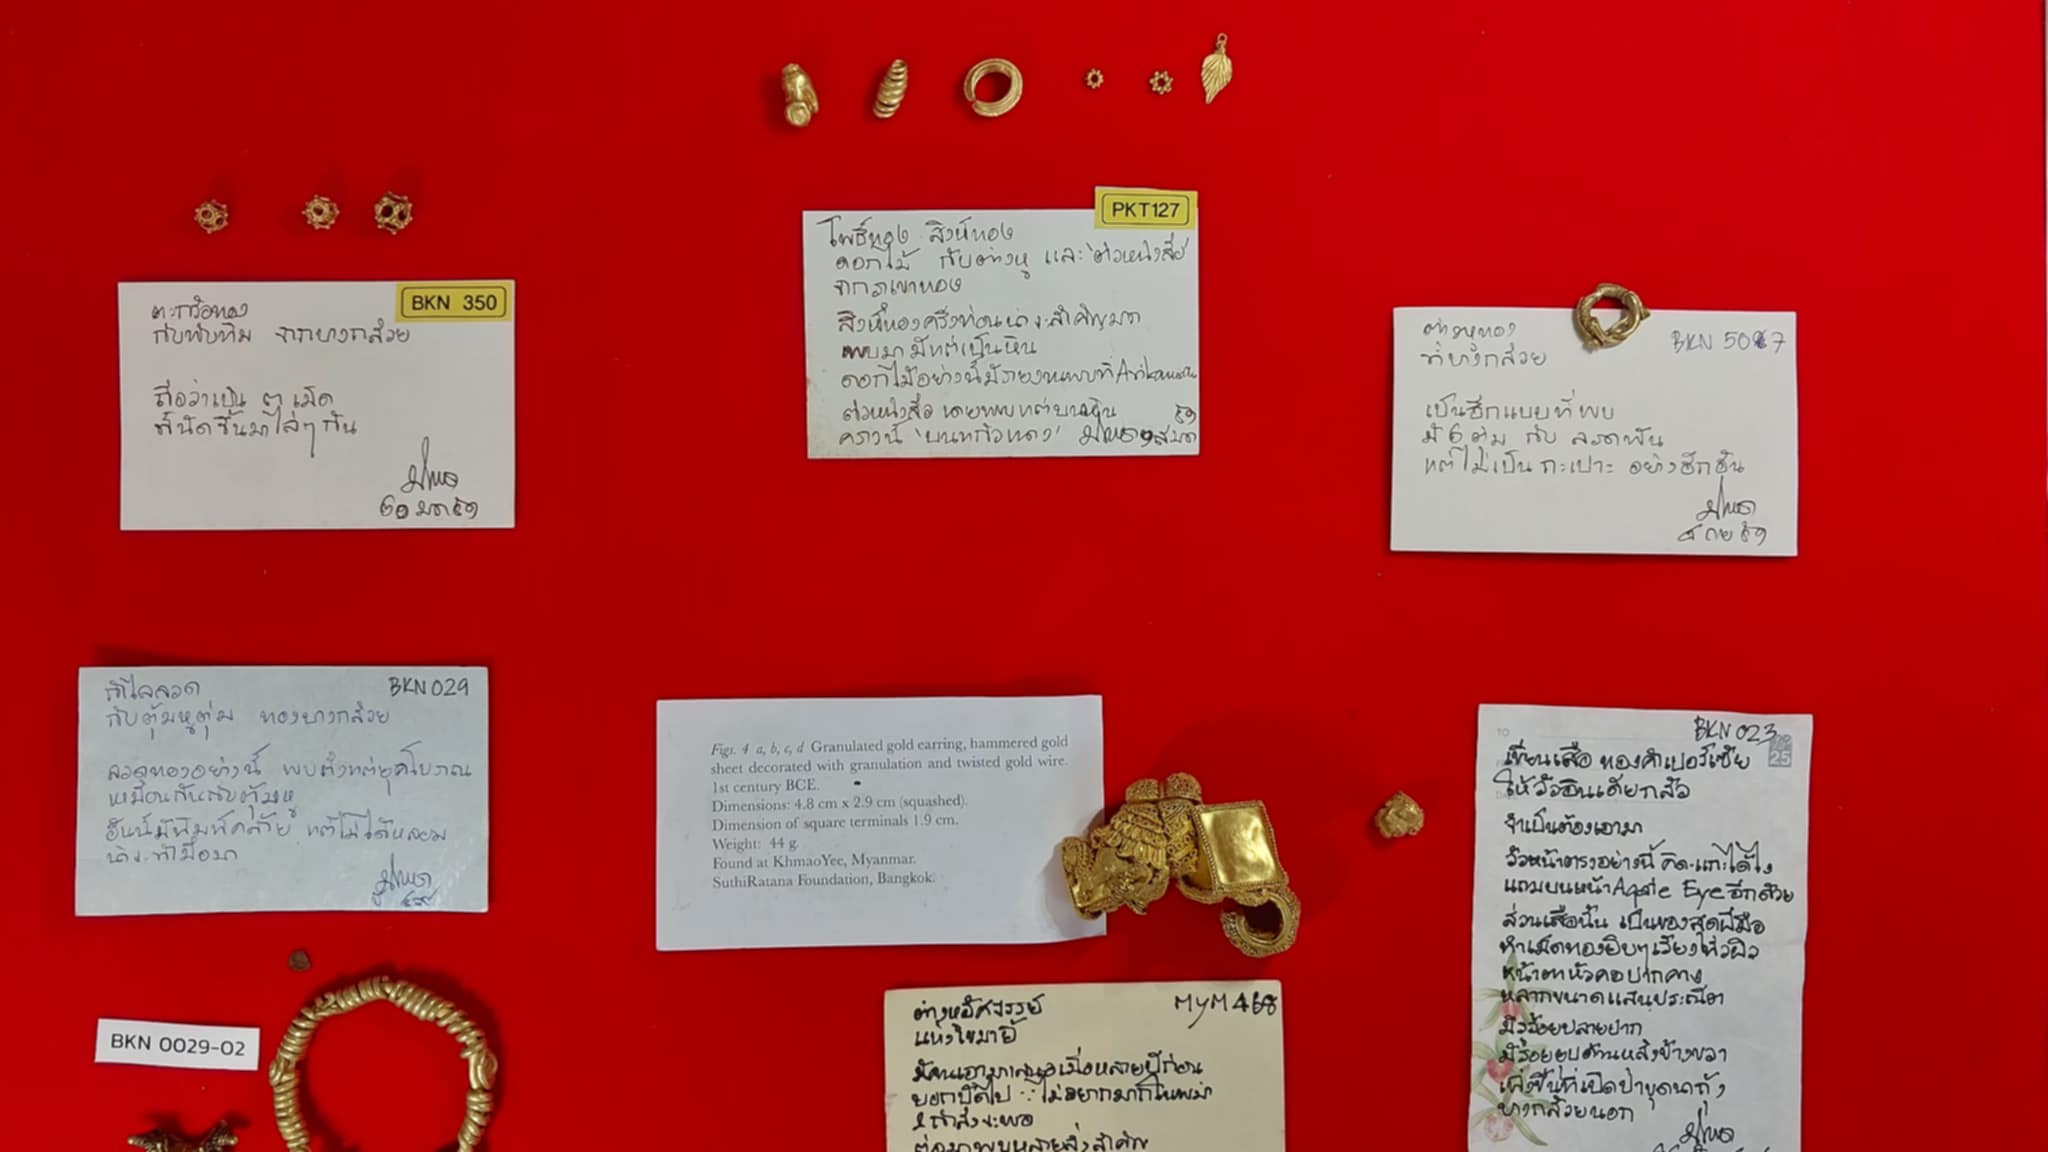 PKT127
โพธิ์ทอง สิงห์ทอง
ดอกไม้ กับต่างหู และ 'ตัวหนังสือ'
จากภูเขาทอง
สิงห์ทองครึ่งท่อนน่าจะสำคัญมาก
พบมามีแต่เป็นหิน
ดอกไม้อย่างนี้มีรายงานพบที่ Arikamedu
ตัวหนังสือ เคยพบแต่บนหิน
คราวนี้
BKN 350
ตะกร้อทอง
กับทับทิม จากบางกล้วย
ถือว่าเป็น ๓ เม็ด
ที่นัดขึ้นมาไล่ๆ กัน
ต่างหูทอง
ที่บางกล้วย
เป็นอีกแบบที่พบ
มี 6 ตุ่ม กับ ลวดพัน
แต่ไม่เป็น กะเปาะ อย่างอีกอัน
BKN 029
กำไลลวด
กับตุ้มหูตุ่ม ทองบางกล้วย
ลวดทองอย่างนี้ พบตั้งแต่ยุคโบราณ
เหมือนกันกับตุ้มหู
อันนี้มีพิมพ์คล้าย แต่ไม่ได้หลอม
น่าจะทำมือมา
Figs. 4 a, b, c, d Granulated gold earring, hammered gold
sheet decorated with granulation and twisted gold wire.
1st century BCE.
Dimensions: 4.8 cm x 2.9 cm (squashed).
Dimension of square terminals 1.9 cm.
Weight: 44 g.
Found at KhmaoYee, Myanmar.
SuthiRatana Foundation, Bangkok.
BKN 023
25
เขียนเสือ ทองคำเปอร์เซีย
ให้วัวอินเดียกลัว
จำเป็นต้องเอามา
วัวหน้าตรงอย่างนี้ คิดแกะได้ไง
แถมบนหน้า Agate Eye อีกด้วย
ส่วนเสือนั้น เป็นของสุดฝีมือ
ทำเม็ดทองยิบๆเรียงทั่วผิว
หน้าตาหัวคอปากคาง
หลากขนาดแสนประณีต
มีรอยปลายปาก
มีรอยยุบด้านหลังข้างขวา
เพิ่งขึ้นที่เปิดป่าขุดนากุ้ง
บางกล้วยนอก
BKN 0029-02
MYM 468
ต่างหูอัศจรรย์
แห่งเขมายี้
มีคนเอามาเสนอเมื่อหลายปีก่อน
บอกปัดไป ∵ ไม่อยากมากไปพม่า
ต่อมาพบหลายสิ่งสำคัญ